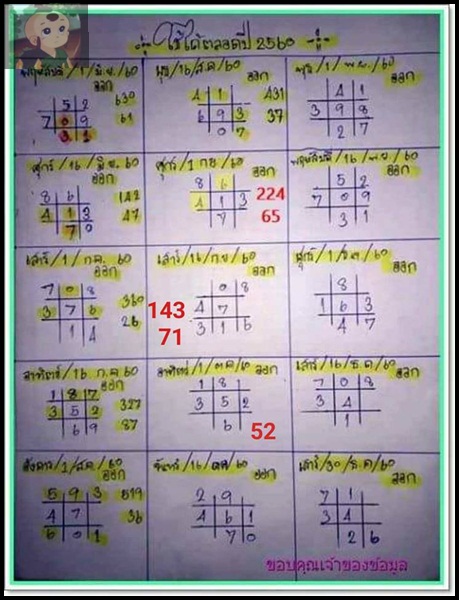 ใช้ได้ตลอดปี 2560
พฤหัสบดี/1/มิ.ย/60
ออก
5 2
7 0 9
3 1
630
61
พุธ/16/ส.ค/60
ออก
4 1
6 9 3
0 7
431
37
พุธ/1/พ.ย/60
ออก
4 1
3 9 8
2 7
ศุกร์/16/มิ.ย/60
ออก
8 6
4 1 3
7 0
142
47
ศุกร์/1 ก.ย/60
ออก
8 6
4 1 3
7
224
65
พฤหัสบดี/16/พ.ย/60
ออก
5 2
7 0 9
3 1
เสาร์/1/ก.ค./60
ออก
7 0 8
3 7 6
1 4
360
26
เสาร์/16/ก.ย/60
ออก
0 8
4 7
3 1 6
143
71
ศุกร์/1/ธ.ค./60
ออก
8
1 6 3
4 7
อาทิตย์/16 ก.ค 60
ออก
1 8 7
3 5 2
6 9
327
87
อาทิตย์/1/ต.ค/60
ออก
1 8
3 5 2
6
52
เสาร์/16/ธ.ค/60
ออก
7 0 8
3 4
1
อังคาร/1/ส.ค/60
ออก
5 9 3
4 7
6 0 1
519
36
จันทร์/16/ต.ค/60
ออก
2 9
4 6 1
7 0
เสาร์/30/ธ.ค/60
ออก
7 1
3 4
2 6
ขอบคุณเจ้าของข้อมูล